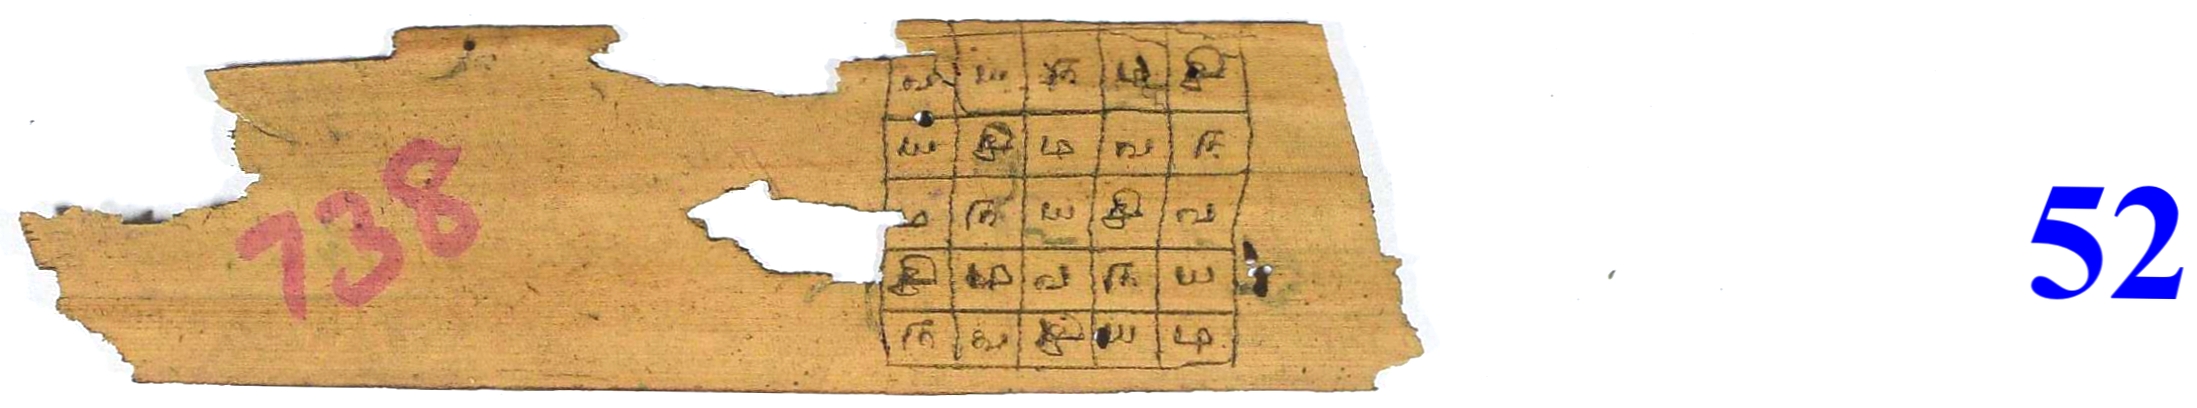 738
சி ந வ ய ம
ம வ சி ந ய
ந ம ய வ சி
ய சி ந ம வ
வ ய ம சி ந
52